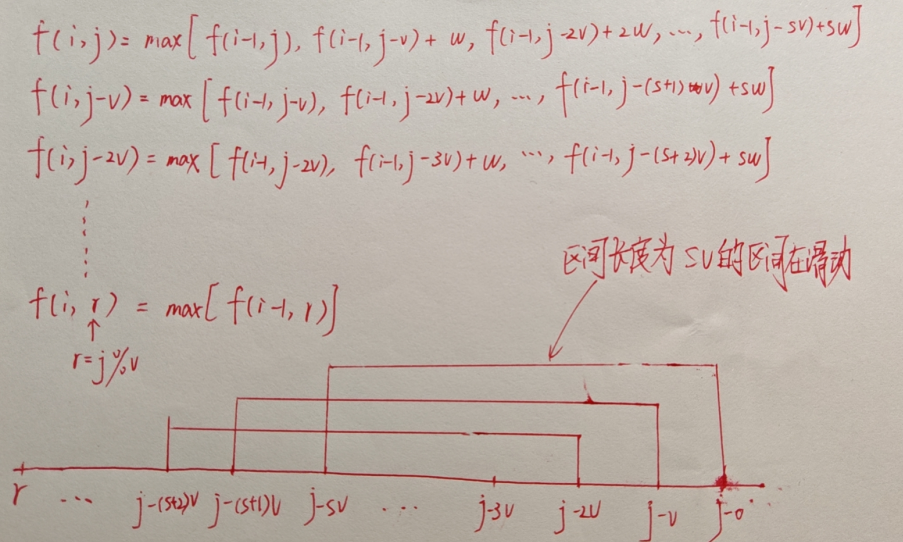 f(i,j)= max[ f(i-1,j), f(i-1,j-v)+ w, f(i-1,j-2v)+2w, ..., f(i-1,j-sv)+sw]
f(i,j-v) = max [ f(i-1,j-v), f(i-1,j-2v)+w, ..., f(i-1,j-(s+1)v) +sw]
f(i,j-2v) = max [ f(i-1,j-2v), f(i-1,j-3v)+w, ..., f(i-1,j-(s+2)v)+sw]
区间长度为 sv 的区间在滑动
f(i, r) = max[ f(i-1, r)]
r=j%v
r ... j-(s+2)v j-(s+1)v j-sv ... j-3v j-2v j-v j-0